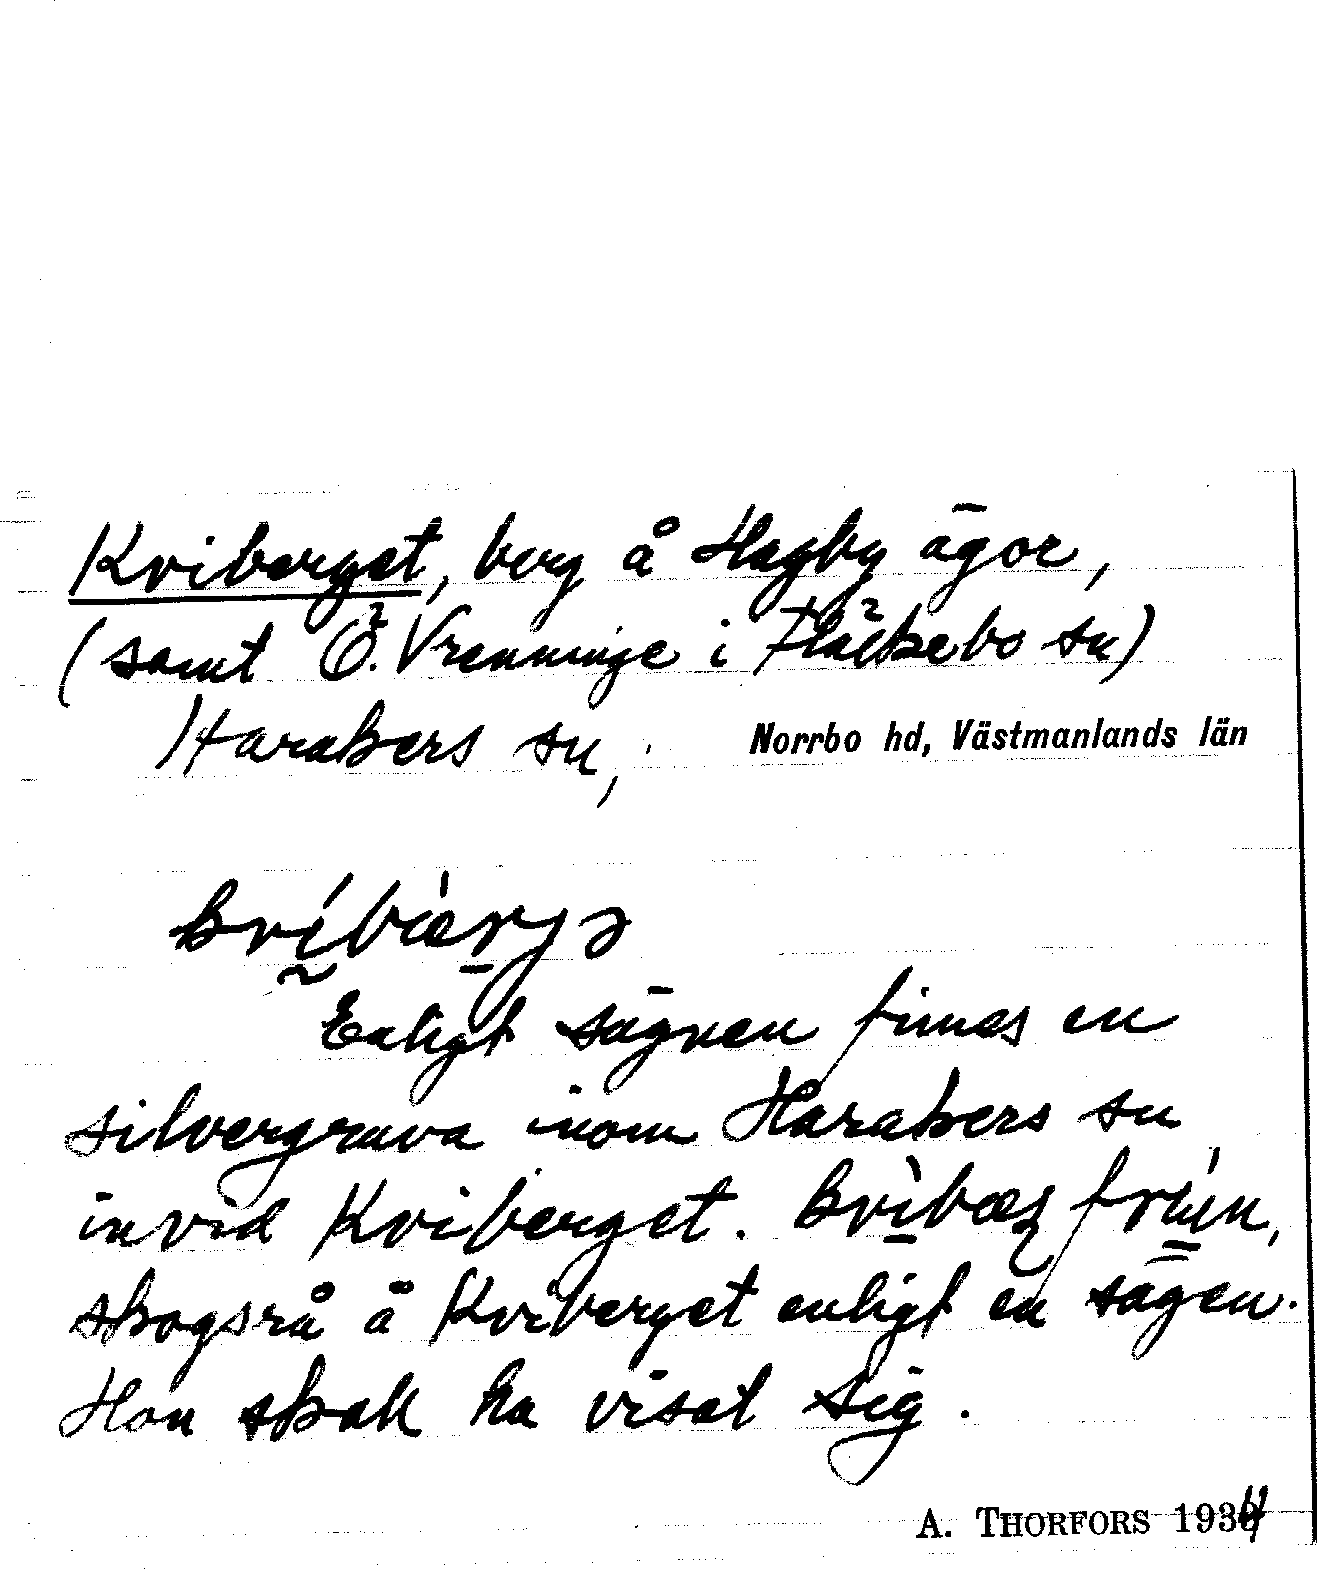 Kviberget, berg å Hagby ägor,
(samt Ö. Vrenninge i Fläckebo sn)
Harakers sn, Norrbo hd, Västmanlands län
Enligt sägnen finnes en
silvergruva inom Harakers sn
invid Kviberget.
skogsrå å Kviberget enligt en sägen.
Hon skall ha visat sig.
A. THORFORS 1934